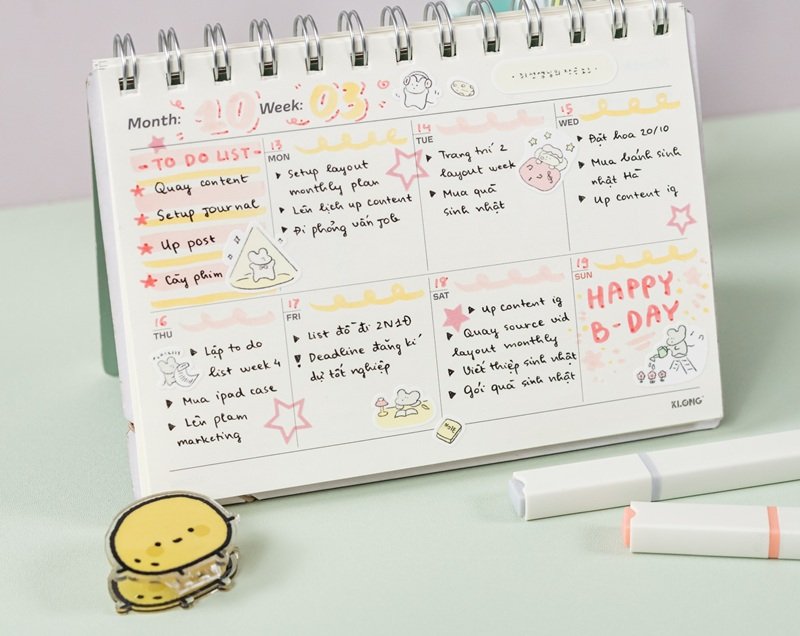 Month: 10 Week: 03
TO DO LIST
Quay content
Setup Journal
Up post
Cày phim
13
MON
Setup layout
monthly plan
Lên lịch up content
Đi phỏng vấn Job
14
TUE
Trang trí 2
layout week
Mua quà
sinh nhật
15
WED
Đặt hoa 20/10
Mua bánh sinh
nhật Hà
Up content ig
16
THU
Lập to do
list week 4
Mua ipad case
Lên plam
marketing
17
FRI
List đồ đi 2N1Đ
Deadline đăng kí
dự tốt nghiệp
18
SAT
Up content ig
Quay source vid
layout monthly
Viết thiệp sinh nhật
Gói quà sinh nhật
19
SUN
HAPPY
B-DAY
KLONG